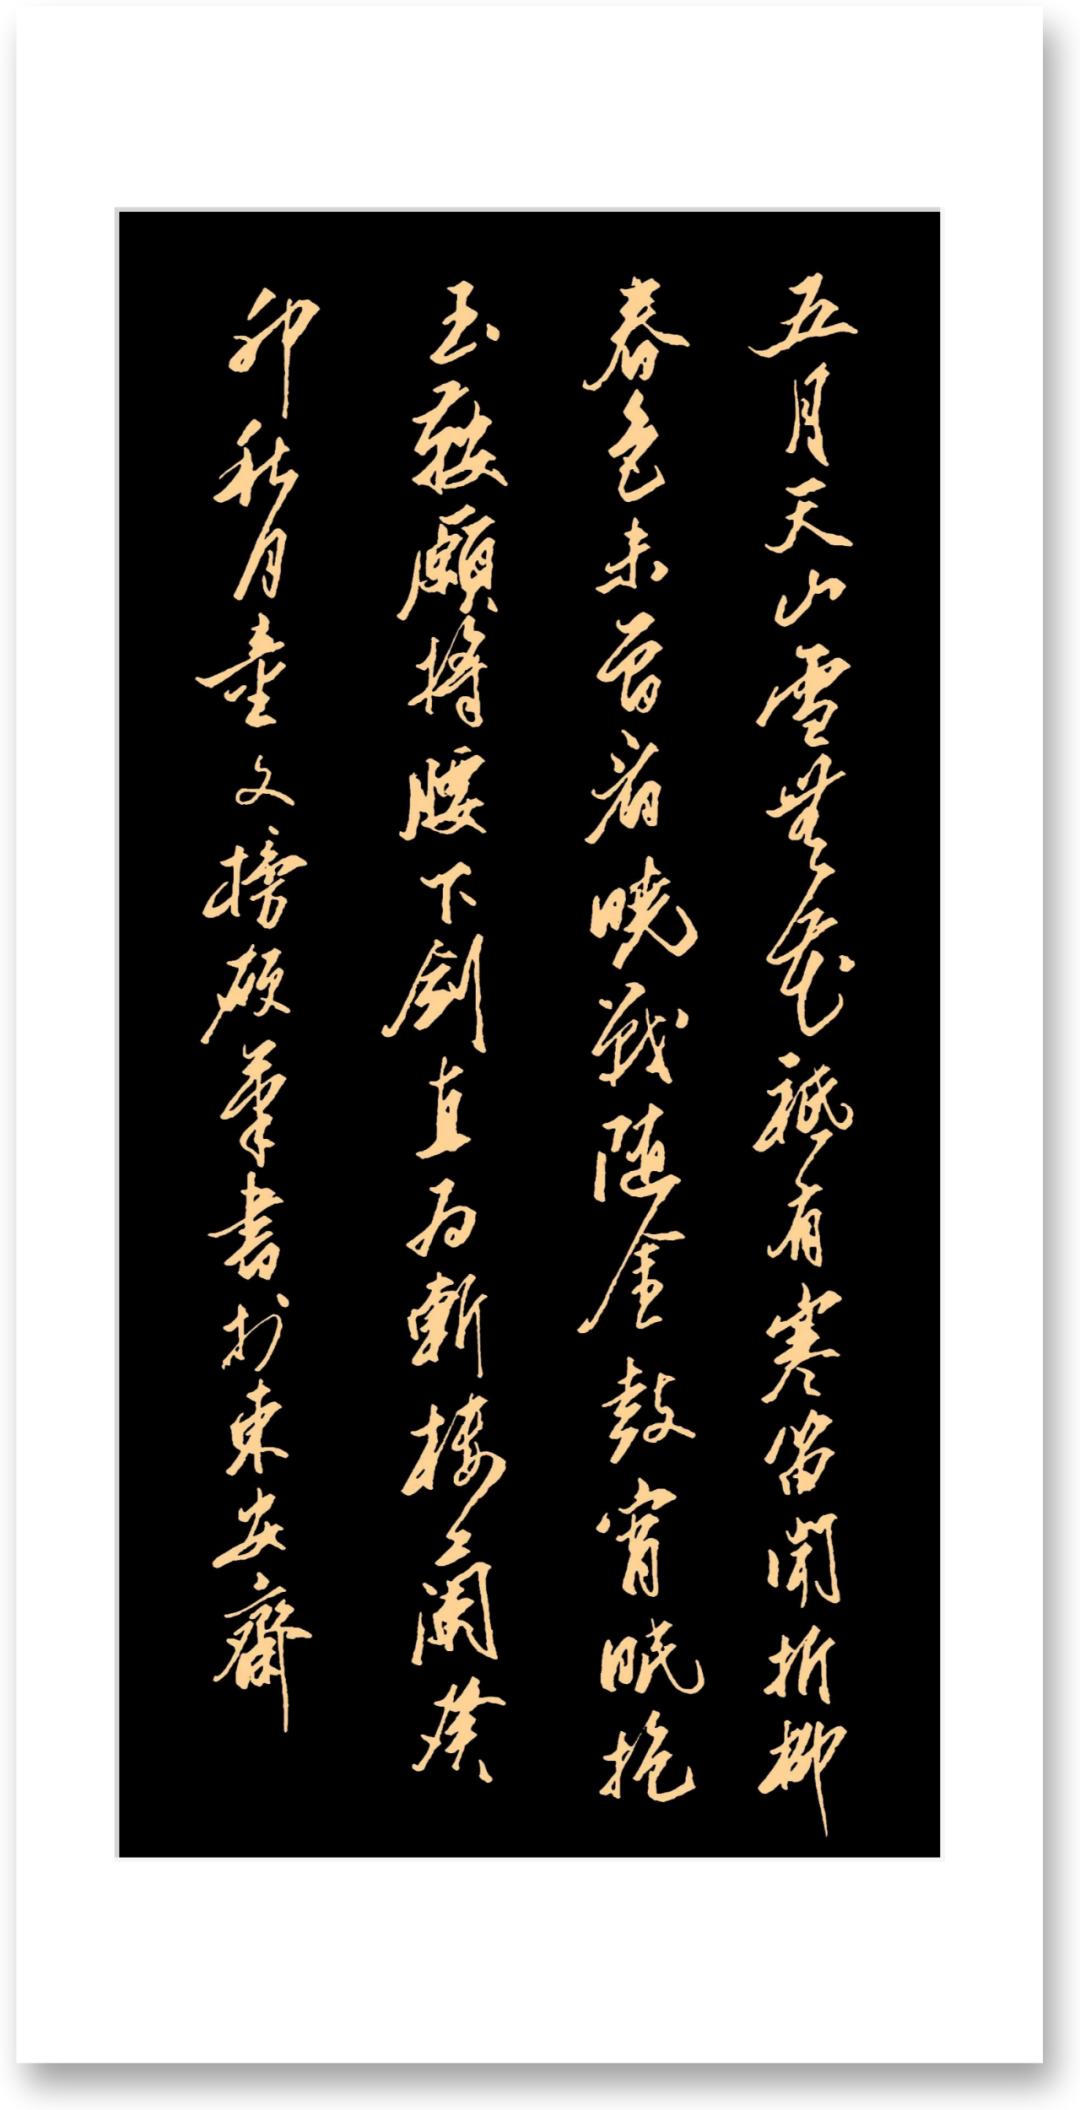 五月天山雪無花祗有寒笛聞折柳
春色未曾看曉戰隨金鼓宵眠抱
玉鞍願將腰下劍直為斬樓蘭癸
卯秋月童文榜硬筆書於東安齋